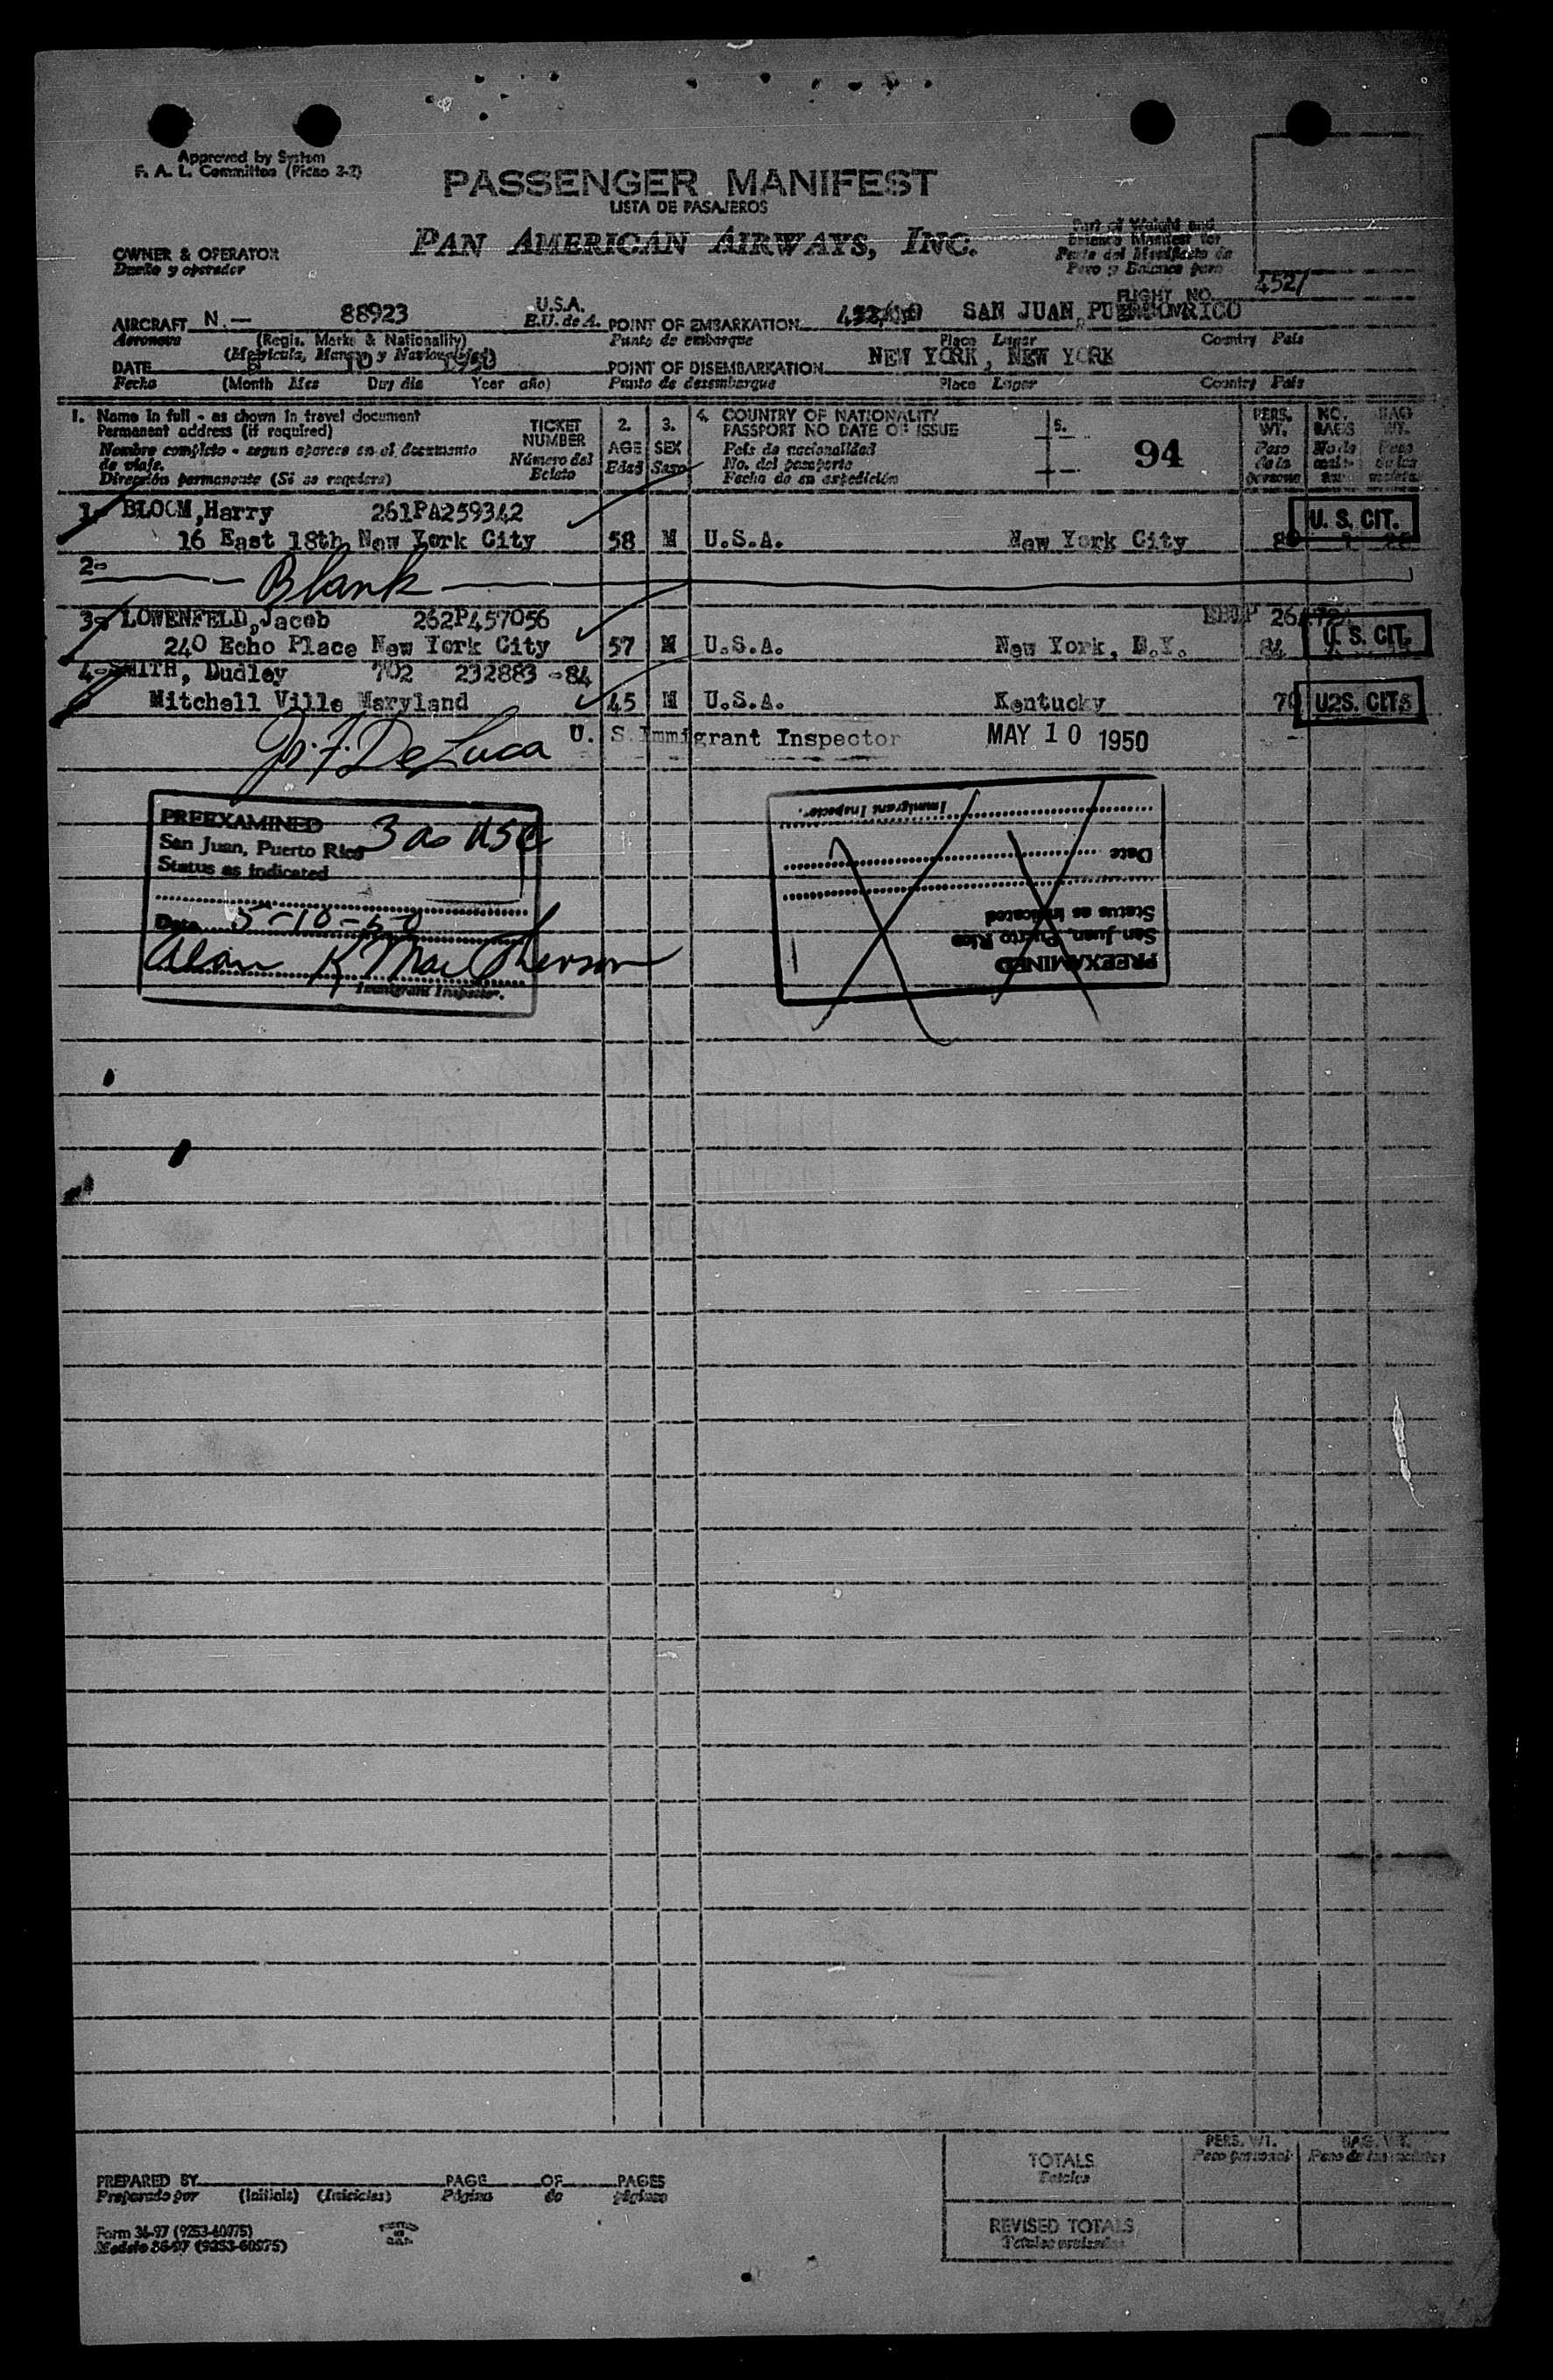 Approved by System
F. A. L. Committee (Picao 2-2)
PASSENGER MANIFEST
LISTA DE PASAJEROS
PAN AMERICAN AIRWAYS, INC.
Part of Weight and
Balance Manifest for
Parte del Manifiesto de
Peso y Balance para
OWNER & OPERATOR
Dueño y operador
FLIGHT NO. 452/
AIRCRAFT N.— 88923 U.S.A. POINT OF EMBARKATION SAN JUAN, PUERTO RICO
Aeronave (Regis. Marks & Nationality) E.U. de A. Punto de embarque Place Lugar Country País
(Matricula, Marcas y Nacionalidad)
DATE 10 1950 POINT OF DISEMBARKATION NEW YORK, NEW YORK
Fecha (Month Mes Day dia Year año) Punto de desembarque Place Lugar Country País
1. Name in full - as shown in travel document
Permanent address (if required)
Nombre completo - segun aparece en el documento
de viaje.
Dirección permanente (Si se requiere)
TICKET
NUMBER
Número del
Boleto
2.
AGE
Edad
3.
SEX
Sexo
4. COUNTRY OF NATIONALITY
PASSPORT NO DATE OF ISSUE
País de nacionalidad
No. del pasaporte
Fecha de su expedición
5.
94
PERS. WT.
Peso de la persona
NO. BAGS
BAG WT.
1- BLOOM, Harry 261PA259342
16 East 18th New York City 58 M U.S.A. New York City U. S. CIT.
2- Blank
3- LOWENFELD, Jacob 262P457056
240 Echo Place New York City 57 M U.S.A. New York, N.Y. 84 U. S. CIT.
4-SMITH, Dudley 702 232883 -84
Mitchell Ville Maryland 45 M U.S.A. Kentucky 70 U. S. CIT.
Jos. F. DeLuca U. S. Immigrant Inspector MAY 10 1950
PREEXAMINED
San Juan, Puerto Rico 3 as USC
Status as indicated
Date 5-10-50
Alan K MacPherson
Immigrant Inspector.
PREEXAMINED
San Juan, Puerto Rico
Status as indicated
Date
Immigrant Inspector.
TOTALS
Totales
PERS. WT.
Peso personal
BAG. WT.
PREPARED BY PAGE OF PAGES
Preparado por (Initials) (Iniciales) Página de páginas
REVISED TOTALS
Form 36-97 (9253-60975)
Modelo 36-97 (9253-60975)